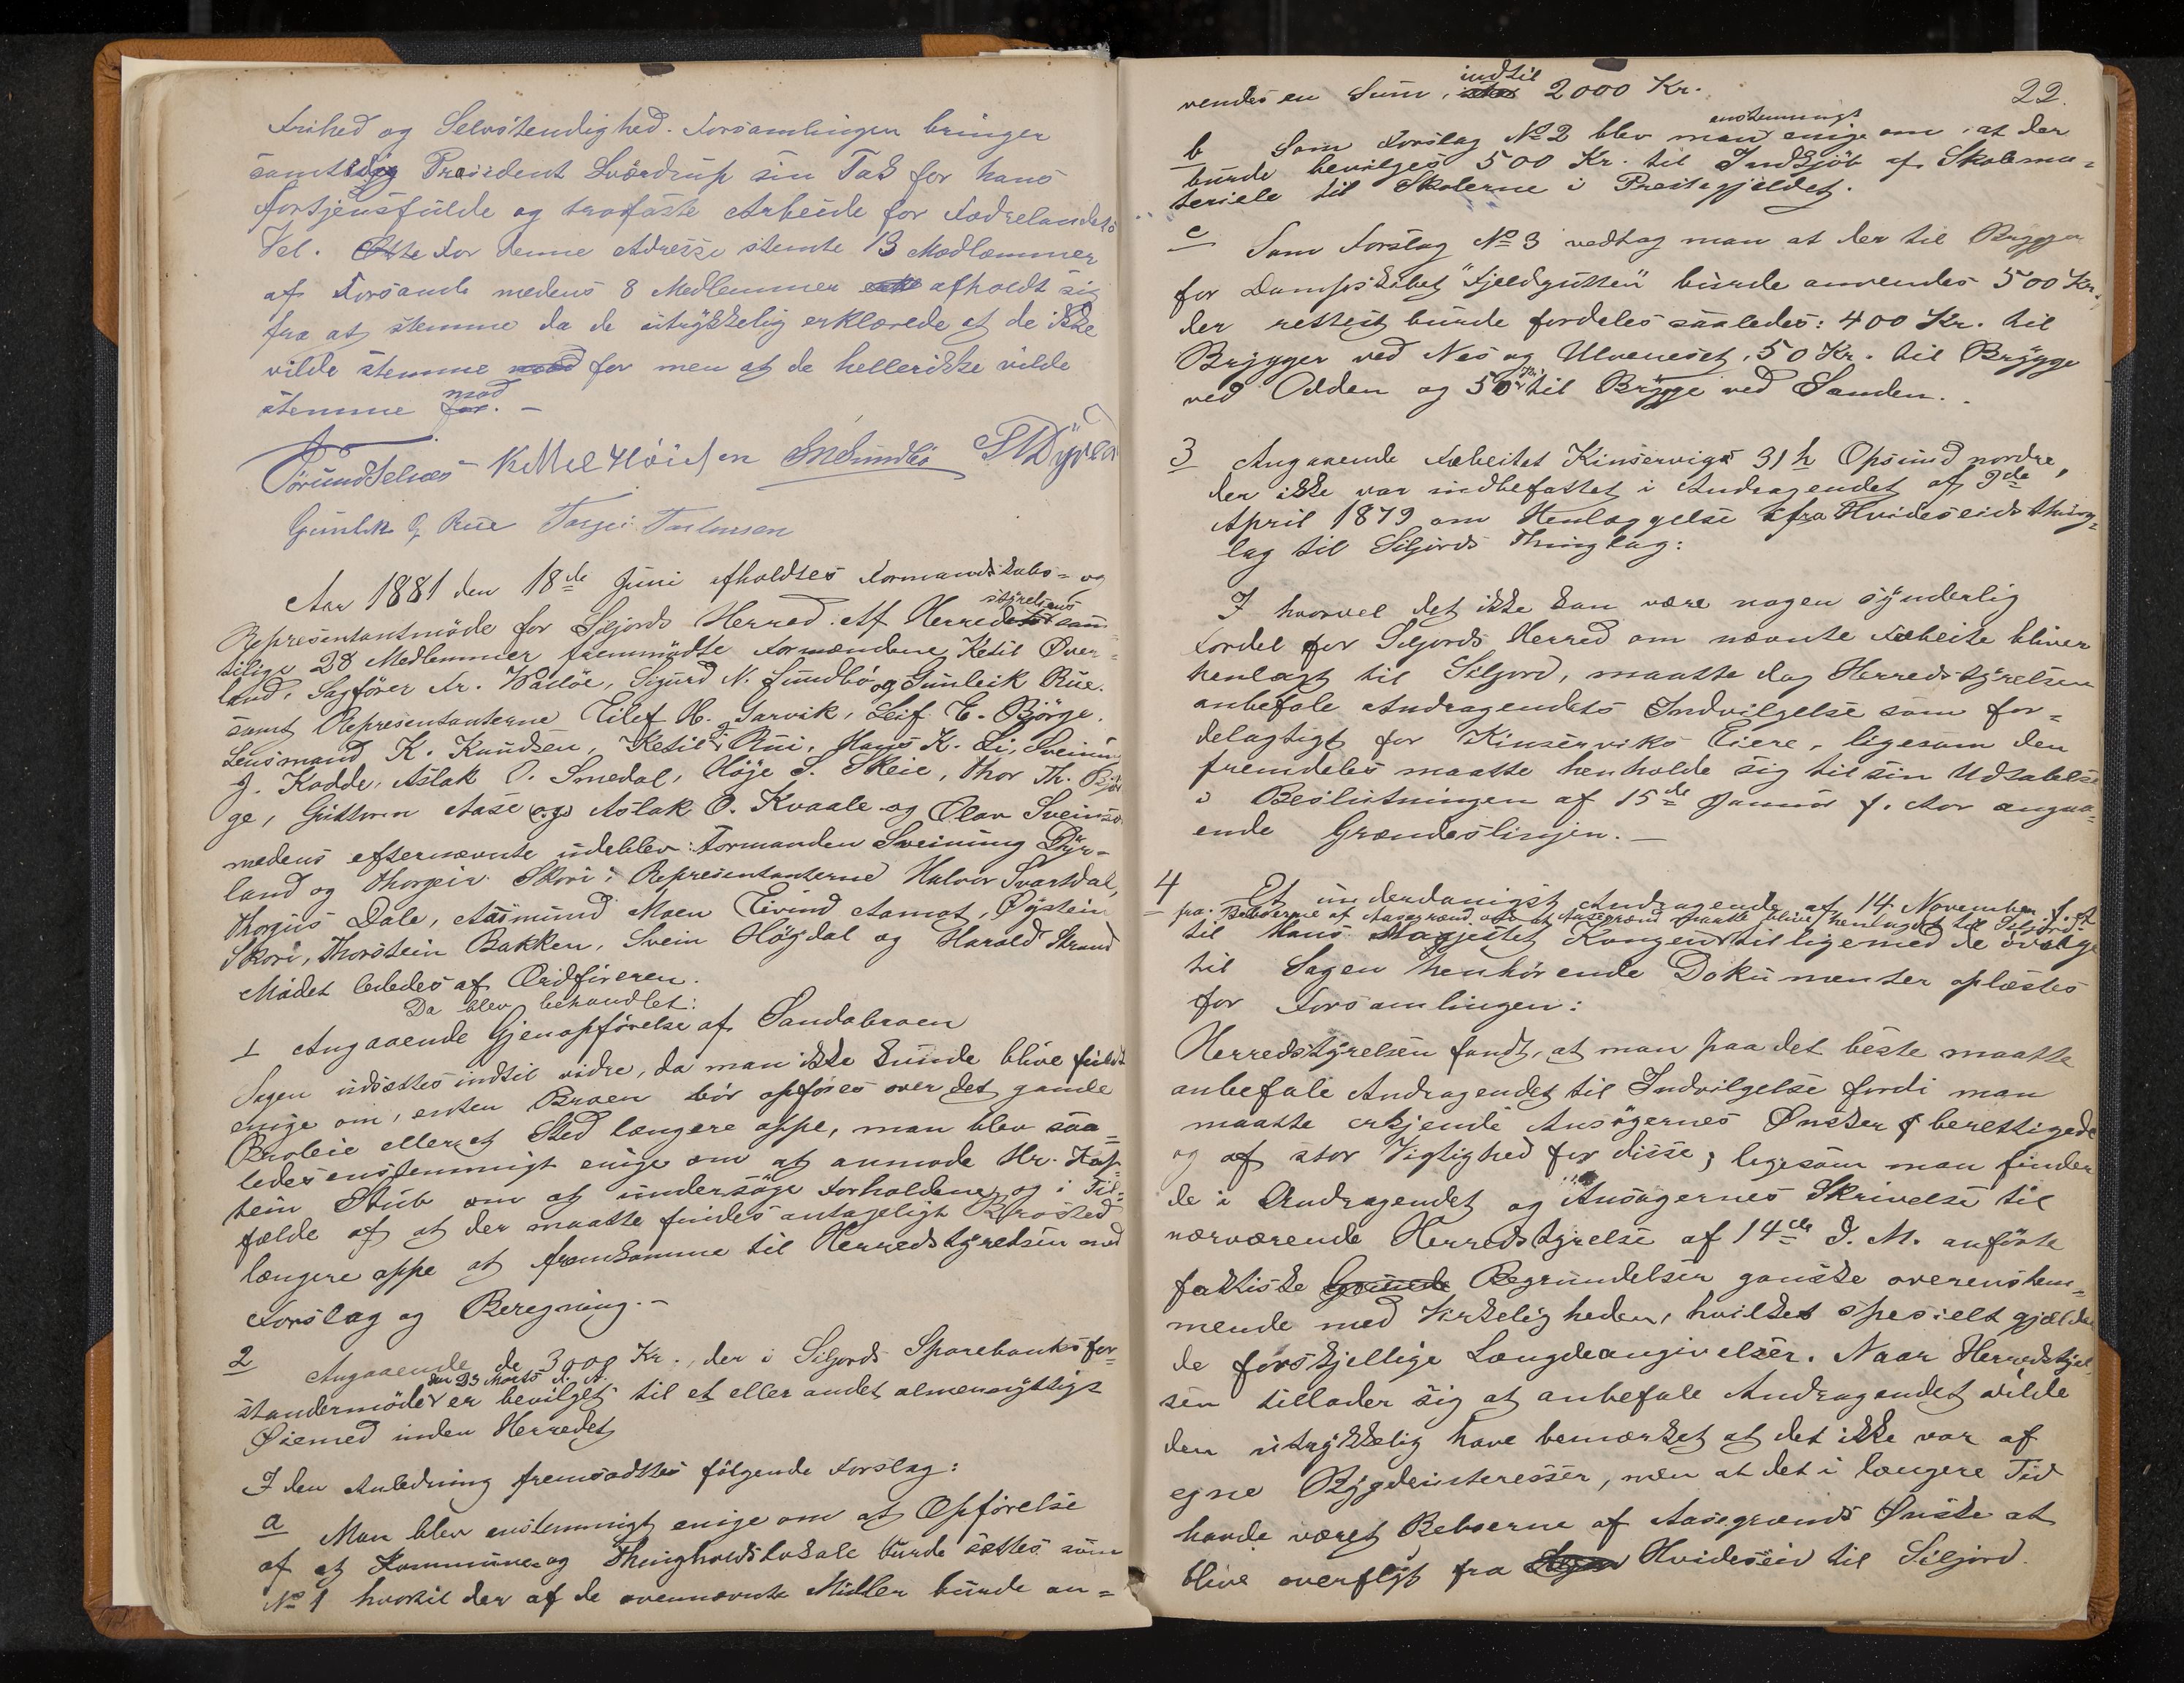 Frihed og Selvstendighed. Forsamlingen bringer
samtidig President Sverdrup sin Tak for hans
fortjensfulde og trofaste Arbeide for Fædrelandets
Vel. For denne Adresse stemte 13 Medlemmer
af Forsaml. medens 8 Medlemmer afholdt sig
fra at stemme da de utrykkelig erklærede at de ikke
vilde stemme for men at de hellerikke vilde
stemme mod. —
Kittel Höidsen SNSundbö
Gunlek G Rue Targei
Aar 1881 den 18de Juni afholdtes Formandskabs- og
Representantmöde for Siljords Herred. Af Herredsstyrelsens sam-
tilige 28 Medlemmer fremmödte Formændene Ketil Över-
land, Sagförer Fr. Wallöe, Sigurd N. Sundbö og Gunleik Rue.
samt Representanterne Eilef H. Garvik, Leif E. Björge,
Lensmand K. Knudsen, Ketil Rui, Hans K. Li, Sveinung
G. Kodde, Aslak O. Smedal, Höje S. Skeie, Thor Th. Björ
ge, Guttorm Aase og Aslak O. Kvaale og Olav Sveinsson
medens efternævnte udeblev: Formanden Sveinung Dyr-
land og Thorgeir Skori; Representanterne Halvor Svartdal,
Thorgius Dale, Aasmund Moen Eivind Aamot, Öystein
Skori, Thorstein Bakken, Svein Högdal og Harald Strand
Mödet lededes af Ordföreren.
Da blev behandlet:
1 Angaaende Gjenopförelse af Sandabroen
Sagen udsattes indtil vidre, da man ikke kunde blive fuldt
enige om, enten Broen bör opföres over det gamle
Broleie eller et Sted længere oppe, man blev saa-
ledes enstemmigt enige om at anmode Hr. Kap-
tein Stub om at undersöge Forholdene og i Til-
fælde af at der maatte findes antageligt Brosted
længere oppe at fremkomme til Herredstyrelsen med
Forslag og Beregning. —
2 Angaaende de 3000 Kr., der i Siljords Sparebanks for-
standermöde den 23 Marts d. A. er bevilget til et eller andet almennyttigt
Öiemed inden Herredet
I den Anledning fremsattes fölgende Forslag:
a Man blev enstemmigt enige om at Opförelse
af et Kommune og Thingholdslokale burde sættes som
No 1 hvortil der af de ovennævnte Midler burde an=
22.
vendes en Sum, indtil 2000 Kr.
b Som Forslag No 2 blev man enstemmigt enige om at der
burde bevilges 500 Kr. til Indkjöb af Skolema-
teriele til Skolerne i Prestegjeldet.
c Som Forslag No 3 vedtog man at der til Brygger
for Dampskibet "Fjeldgutten" burde anvendes 500 Kr.,
der rettest burde fordeles saaledes: 400 Kr. til
Brygger ved Nes og Ulveneset, 50 Kr. til Brygge
ved Odden og 50 Kr. til Brygge ved Sanden.
3 Angaaende Febeitet Kinservigs 31 h Opsund nordre,
der ikke var indbefattet i Andragendet af 9de
April 1879 om Henlæggelse fra Hvideseids Thing-
lag til Siljords Thinglag:
I hvorvel det ikke kan være nogen synderlig
Fordel for Siljords Herred om nævnte Febeite bliver
henlagt til Siljord, maatte dog Herredstyrelsen
anbefale Andragendets Indvilgelse som for-
delagtigt for Kinserviks Eiere, ligesom den
fremdeles maatte henholde sig til sin Udtalelse
i Beslutningen af 15de Januar f. Aar angaa-
ende Grændeslinjen. —
4 Et underdanigst Andragende af 14 November f. A.
fra Beboerne af Aasegrænd om at Aasegrænd maatte blive henlagdt til Siljord
til Hans Majestet Kongen tilligemed de övrige
til Sagen henhörende Dokumenter oplæstes
for Forsamlingen:
Herredstyrelsen fandt, at man paa det beste maatte
anbefale Andragendet til Indvilgelse fordi man
maatte erkjende Ansögernes Önsker berettigede
og af stor Vigtighed for disse, ligesom man finder
de i Andragendet og Ansögernes Skrivelse til
nærværende Herredstyrelse af 14de d. M. anförte
faktiske Begrundelser ganske overenstem-
mende med Virkeligheden, hvilket spesielt gjelder
de forskjellige Længdeangivelser. Naar Herredstyrel-
sen tillader sig at anbefale Andragendet vilde
den utrykkelig have bemærket at det ikke var af
egne Bygdeinteresser, men at det i længere Tid
havde været Beboerne af Aasegrænds Önske at
blive overflyt fra Hvideseid til Siljord.